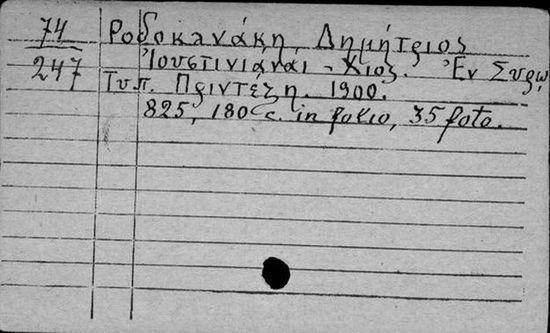 74 Ροδοκανάκη, Δημήτριος
247 Ἰουστινιάναι - Χίος. Ἐν Σύρῳ
Τυπ. Πριντέζη. 1900.
825, 180 c. in folio, 35 foto.